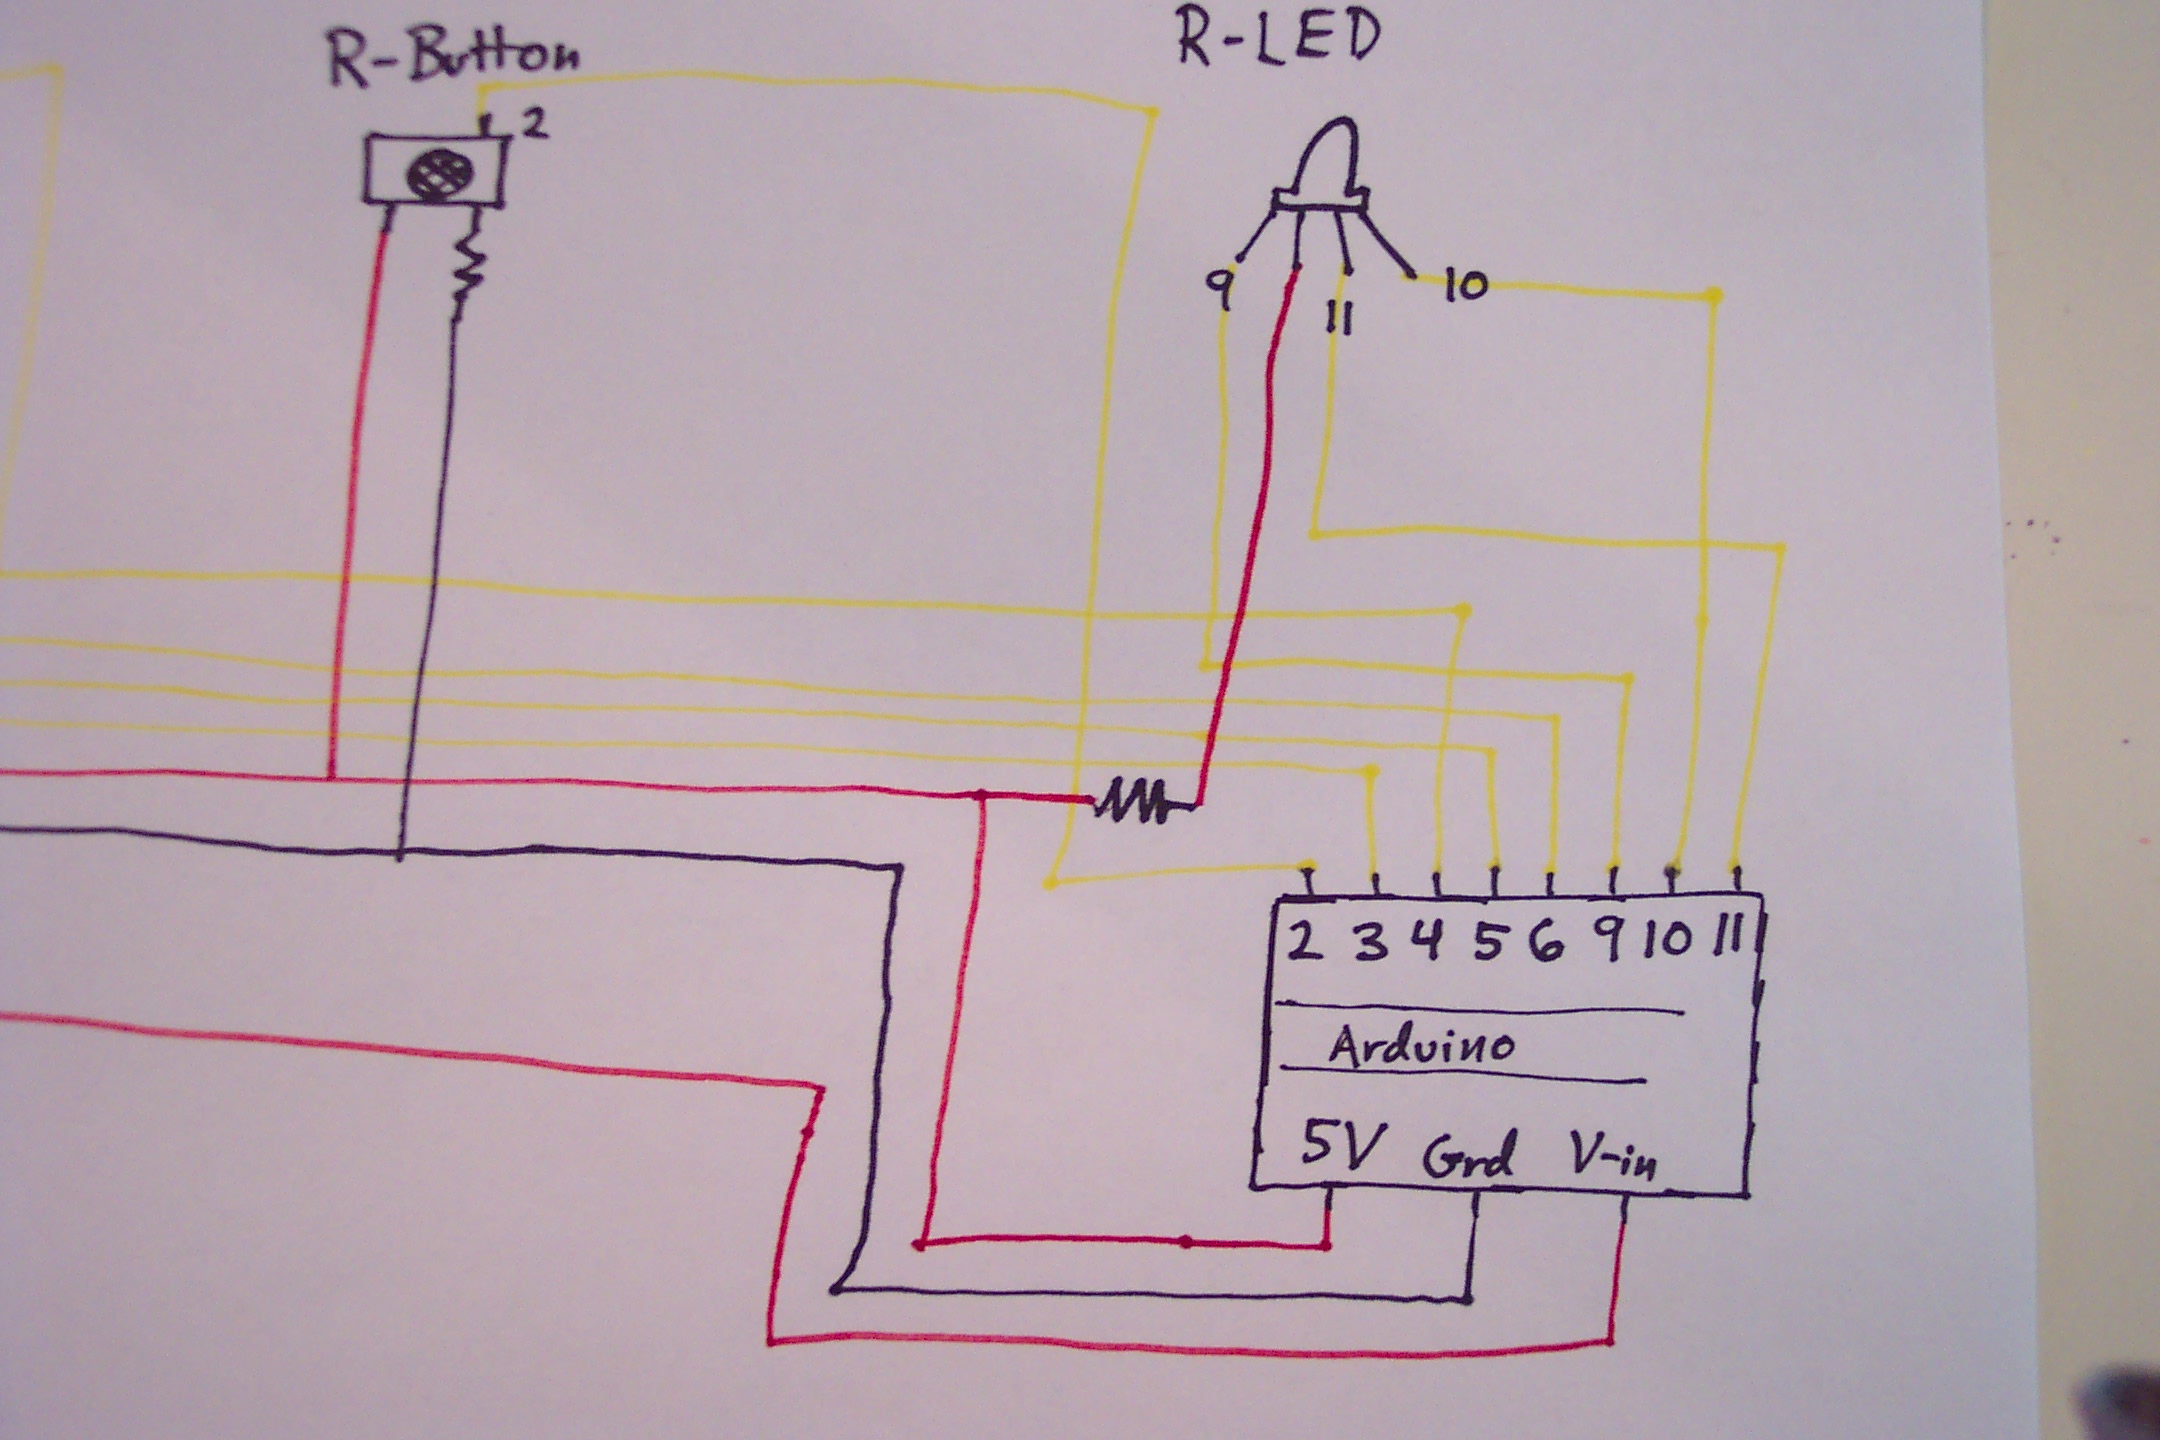 R-Button
R-LED
2
9
11
10
2 3 4 5 6 9 10 11
Arduino
5V Grd V-in